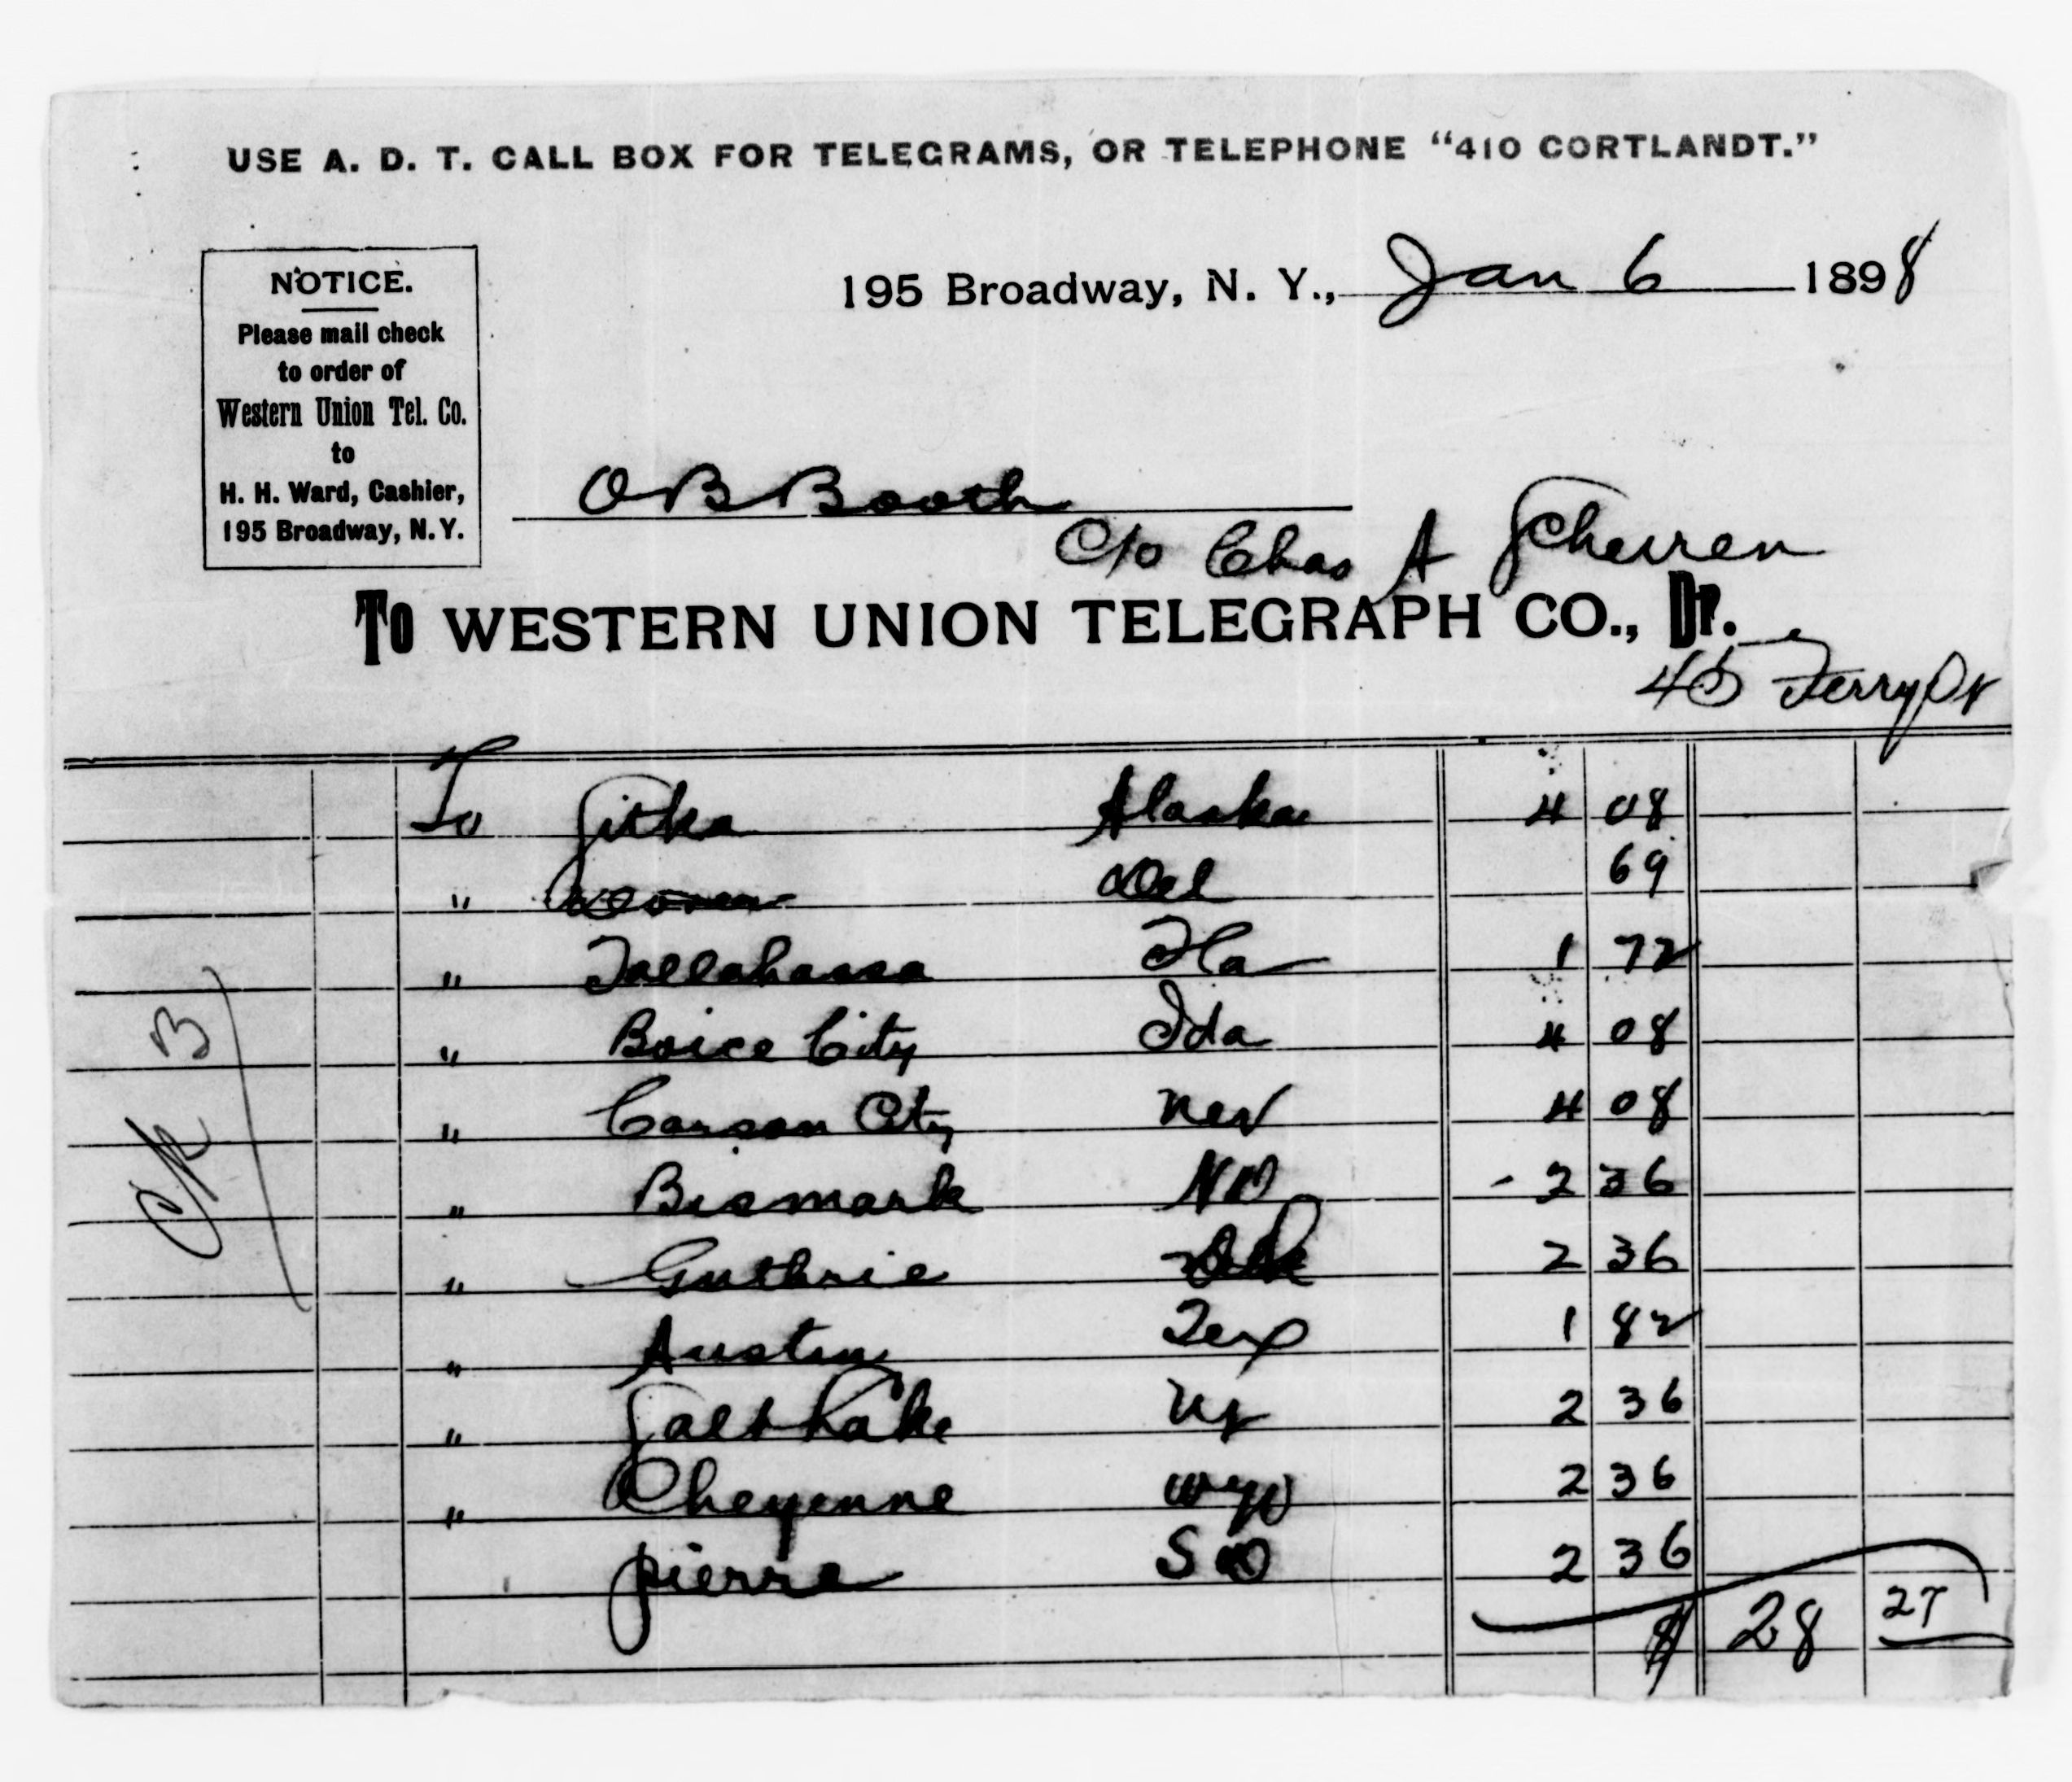 USE A. D. T. CALL BOX FOR TELEGRAMS, OR TELEPHONE "410 CORTLANDT."
195 Broadway, N. Y., Jan 6 1898
NOTICE.
Please mail check
to order of
Western Union Tel. Co.
to
H. H. Ward, Cashier,
195 Broadway, N.Y.
O B Booth
C/o Chas A Scheiren
TO WESTERN UNION TELEGRAPH CO., Dr.
45 Ferry St
To Sitka Alaska 4 08
" Dover Del 69
" Tallahassa Fla 1 72
" Boice City Ida 4 08
" Carson City Nev 4 08
" Bismark ND - 2 36
" Guthrie Okla 2 36
" Austin Tex 1 82
" Salt Lake Ut 2 36
" Cheyenne Wyo 2 36
pierre S D 2 36
$ 28 27
CK B